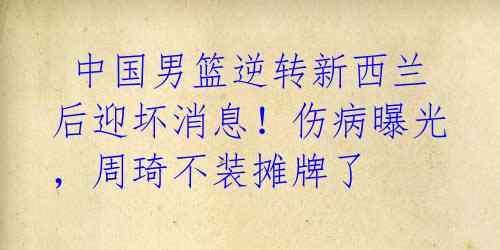 中国男篮逆转新西兰
后迎坏消息！伤病曝光
，周琦不装摊牌了